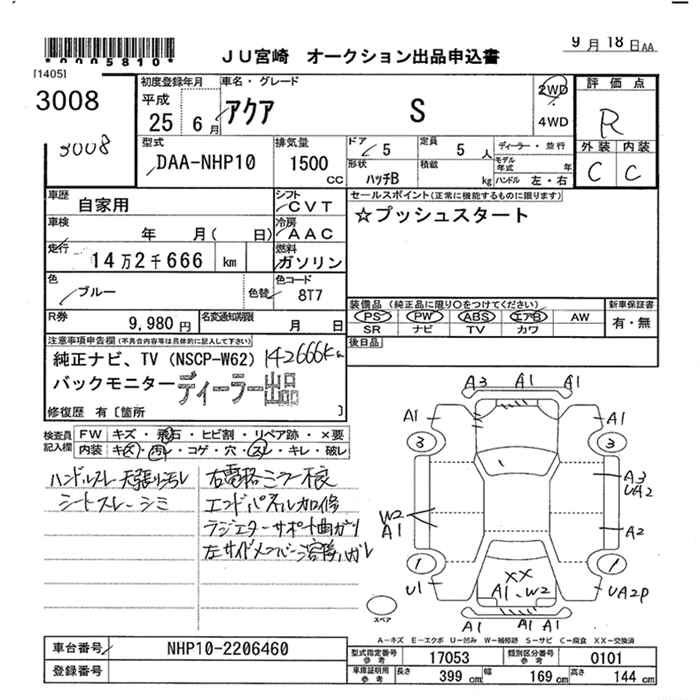 *0005810*
JU宮崎 オークション出品申込書
9月18日AA
[1405]
3008
3008
初度登録年月
平成
25 6月
車名・グレード
アクア S
2WD
4WD
評価点
R
外装 内装
C C
型式
DAA-NHP10
排気量
1500
cc
ドア
5
定員
5人
形状
ハッチB
積載
kg
ディーラー・並行
モデル
年式 年
ハンドル 左・右
車歴
自家用
シフト
CVT
車検
年 月( 日)
冷房
AAC
走行
14万2千666 km
燃料
ガソリン
色
ブルー
色替
色コード
8T7
R券
9,980円
名変通知期限
月 日
セールスポイント(正常に機能するものに限ります)
☆プッシュスタート
装備品(純正品に限り○をつけてください)
PS PW ABS エアB AW
SR ナビ TV カワ
新車保証書
有・無
後日品
注意事項申告欄(不具合内容等は具体的に記入して下さい)
純正ナビ、TV(NSCP-W62) 142666K
バックモニター ディーラー出品
修復歴 有〔箇所 〕
検査員
記入欄
FW キズ・飛石・ヒビ割・リペア跡・×要
内装 キズ・汚レ・コゲ・穴・スレ・キレ・破レ
ハンドルスレ 天張り汚レ
シートスレ・シミ
右電格ミラー不良
エンドパネル加修
ラジエターサポート曲ガリ
左サイドメンバー溶接ハガレ
A3 A1 A1
A1 A1
3 3
A3
UA2
W2
A1
A2
1 1
U1
XX
A1.W2
UA2P
A1 A1 A1
スペア
A-キズ E-エクボ U-凹み W-補修跡 S-サビ C-腐食 XX-交換済
車台番号
NHP10-2206460
登録番号
型式指定番号
参考
17053
類別区分番号
参考
0101
車庫証明用
参考
長さ 399 cm
幅 169 cm
高さ 144 cm